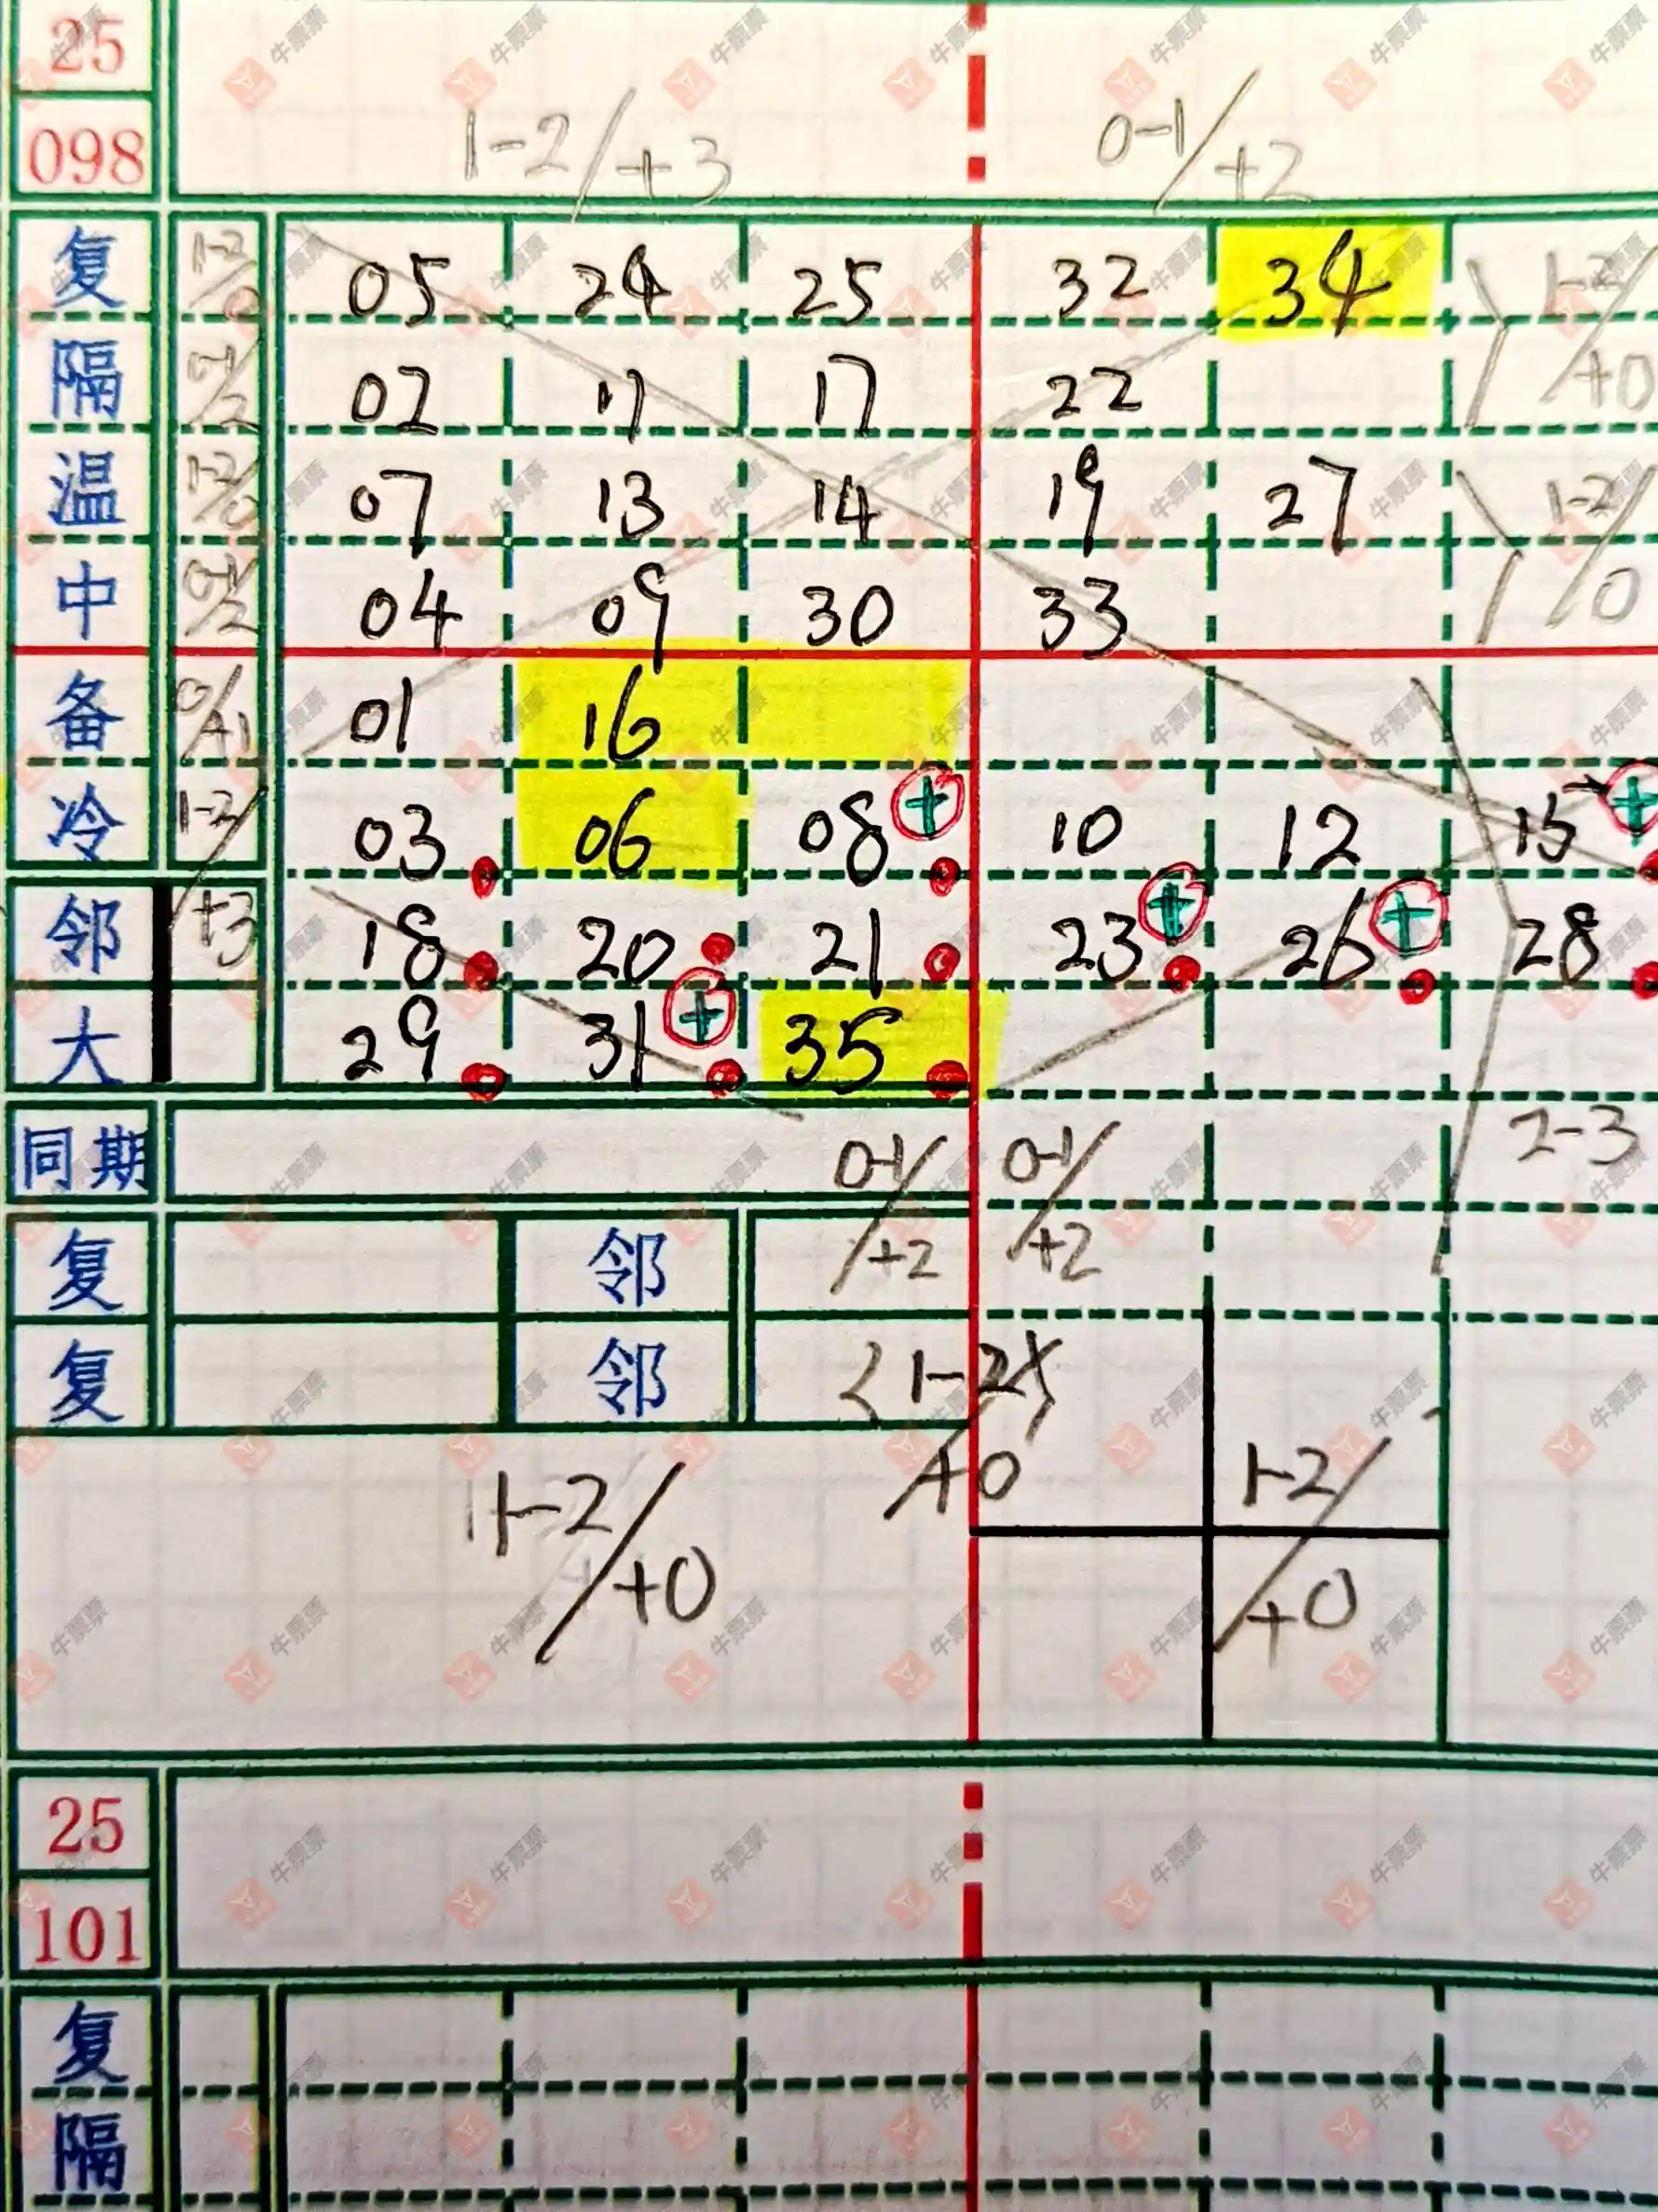 25
098 1-2/+3 0-1/+2
复 1-2/0 05 24 25 32 34 1-2/+0
隔 02 11 17 22
温 1-2/0 07 13 14 19 27 1-2/0
中 04 09 30 33
备 0/+1 01 16
冷 1-2/+3 03 06 08 + 10 12 15 +
邻 18 20 21 23 + 26 + 28
大 29 31 + 35
同期 0-1/+2 0-1/+2 2-3
复 邻
复 邻 <1-2>/+0
1-2/+0 1-2/+0
25
101
复
隔
牛票票